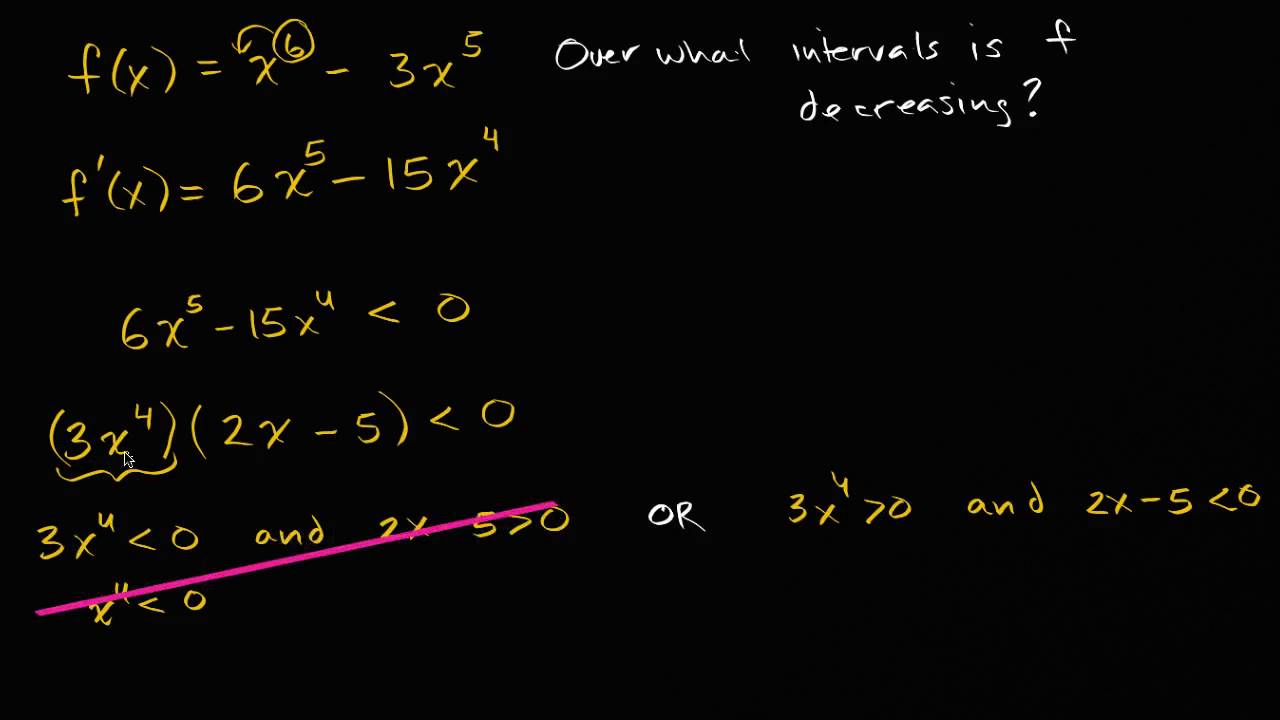 f(x) = x⁶ - 3x⁵
Over what intervals is f
decreasing?
f'(x) = 6x⁵ - 15x⁴
6x⁵ - 15x⁴ < 0
(3x⁴)(2x - 5) < 0
3x⁴ < 0 and 2x - 5 > 0 OR 3x⁴ > 0 and 2x - 5 < 0
x⁴ < 0